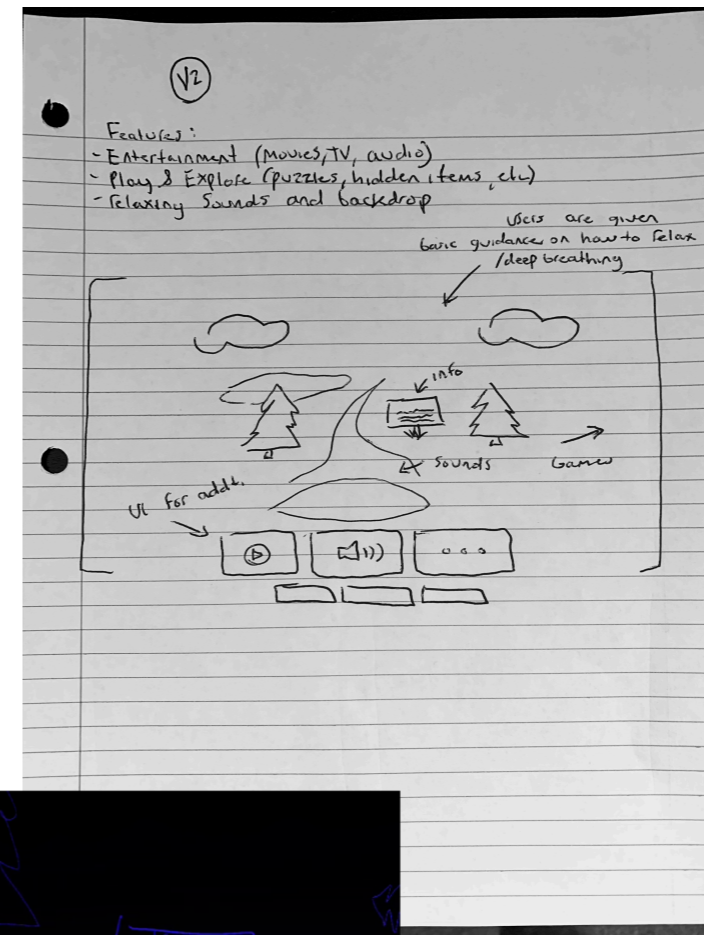 V2
Features:
- Entertainment (Movies, TV, audio)
- Play & Explore (puzzles, hidden items, etc)
- relaxing Sounds and backdrop
Users are given
basic guidance on how to relax
/deep breathing
info
Sounds
Games
UI for addt.